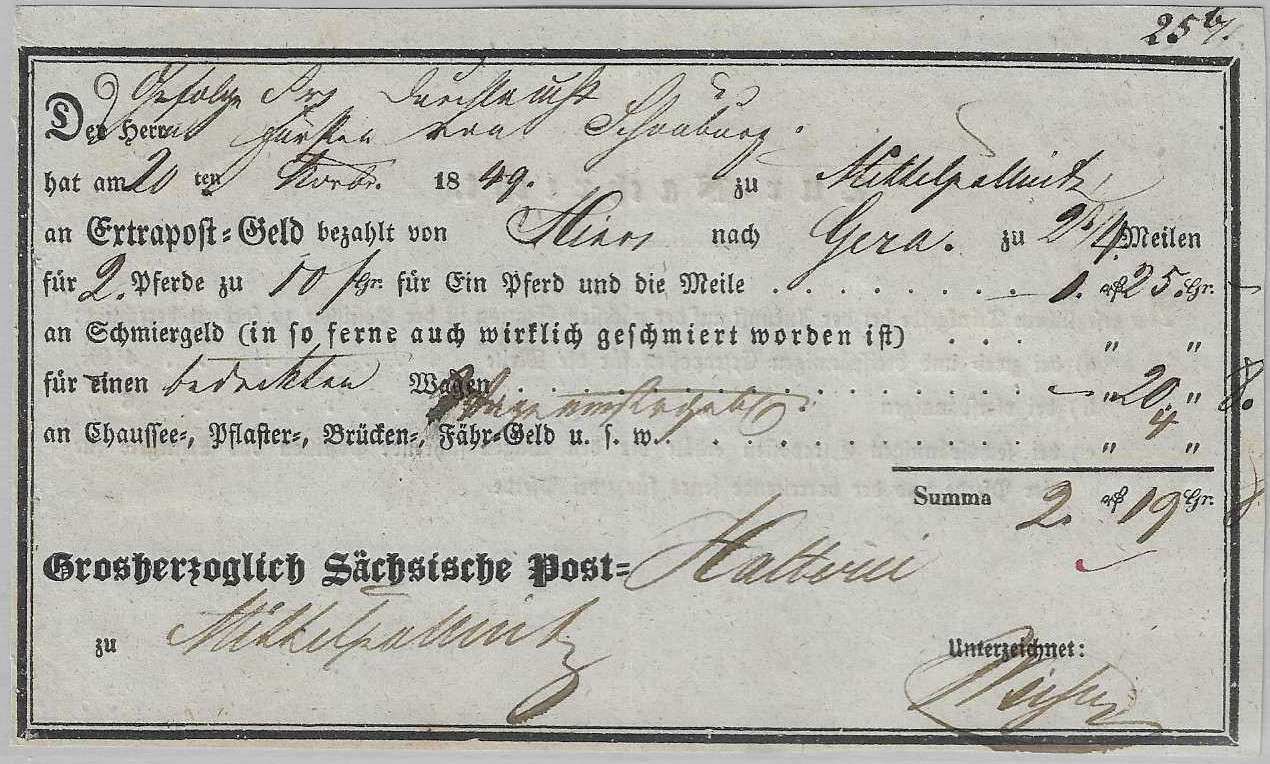 25
Gefolge Sr Durchlaucht
Der Herrn Fürsten von Schönburg.
hat am 20 ten Novbr. 18 49. zu Mittelpöllnitz
an Extrapost=Geld bezahlt von Hier nach Gera. zu 2 3/4 Meilen
für 2. Pferde zu 10 sgr. für Ein Pferd und die Meile . . . . . . . . 1. rβ 25. Gr. —
an Schmiergeld (in so ferne auch wirklich geschmiert worden ist) . . . „ „
für einen bedeckten Wagen . . . . . . . . . . . . . . . . „ 20. „ 8.
an Chaussee=, Pflaster=, Brücken=, Fähr=Geld u. s. w. . . . . . . . . . . . „ 4 „
Summa 2. rβ 19 Gr. 8
Grosherzoglich Sächsische Post= Halterei
zu Mittelpöllnitz
Unterzeichnet: